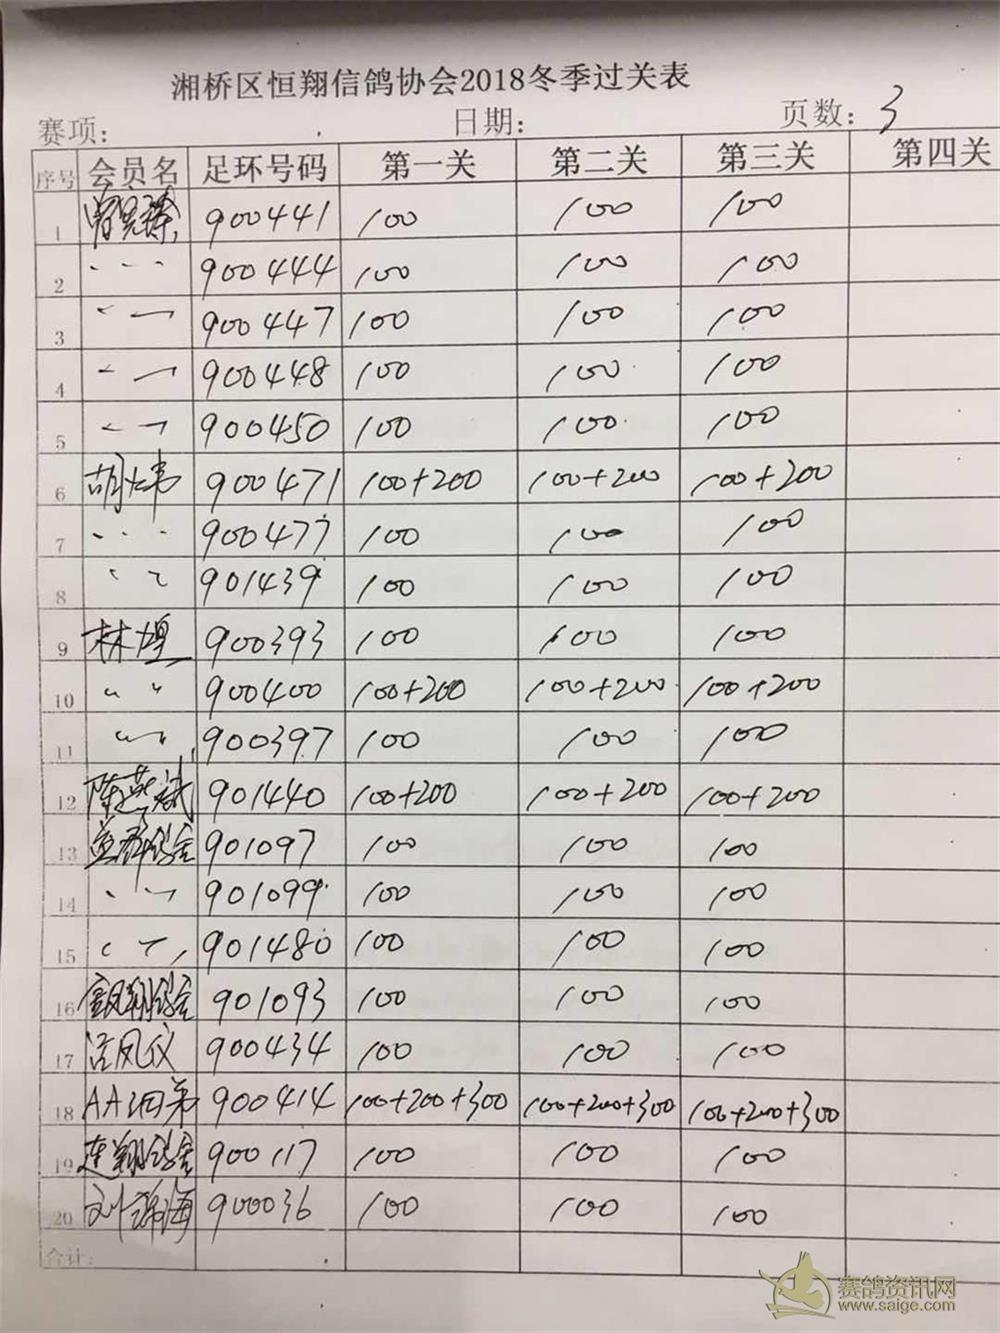 湘桥区恒翔信鸽协会2018冬季过关表
赛项: 日期: 页数: 3
序号 会员名 足环号码 第一关 第二关 第三关 第四关
1 900441 100 100 100
2 〃 900444 100 100 100
3 〃 900447 100 100 100
4 〃 900448 100 100 100
5 〃 900450 100 100 100
6 胡炜 900471 100+200 100+200 100+200
7 〃 900477 100 100 100
8 〃 901439 100 100 100
9 林煌 900393 100 100 100
10 〃 900400 100+200 100+200 100+200
11 〃 900397 100 100 100
12 陈燕斌 901440 100+200 100+200 100+200
13 鸽舍 901097 100 100 100
14 〃 901099 100 100 100
15 〃 901480 100 100 100
16 凤翔鸽舍 901093 100 100 100
17 凤仪 900434 100 100 100
18 AA 兄弟 900414 100+200+300 100+200+300 100+200+300
19 翔鸽舍 900117 100 100 100
20 海 900036 100 100 100
合计:
赛鸽资讯网
www.saige.com